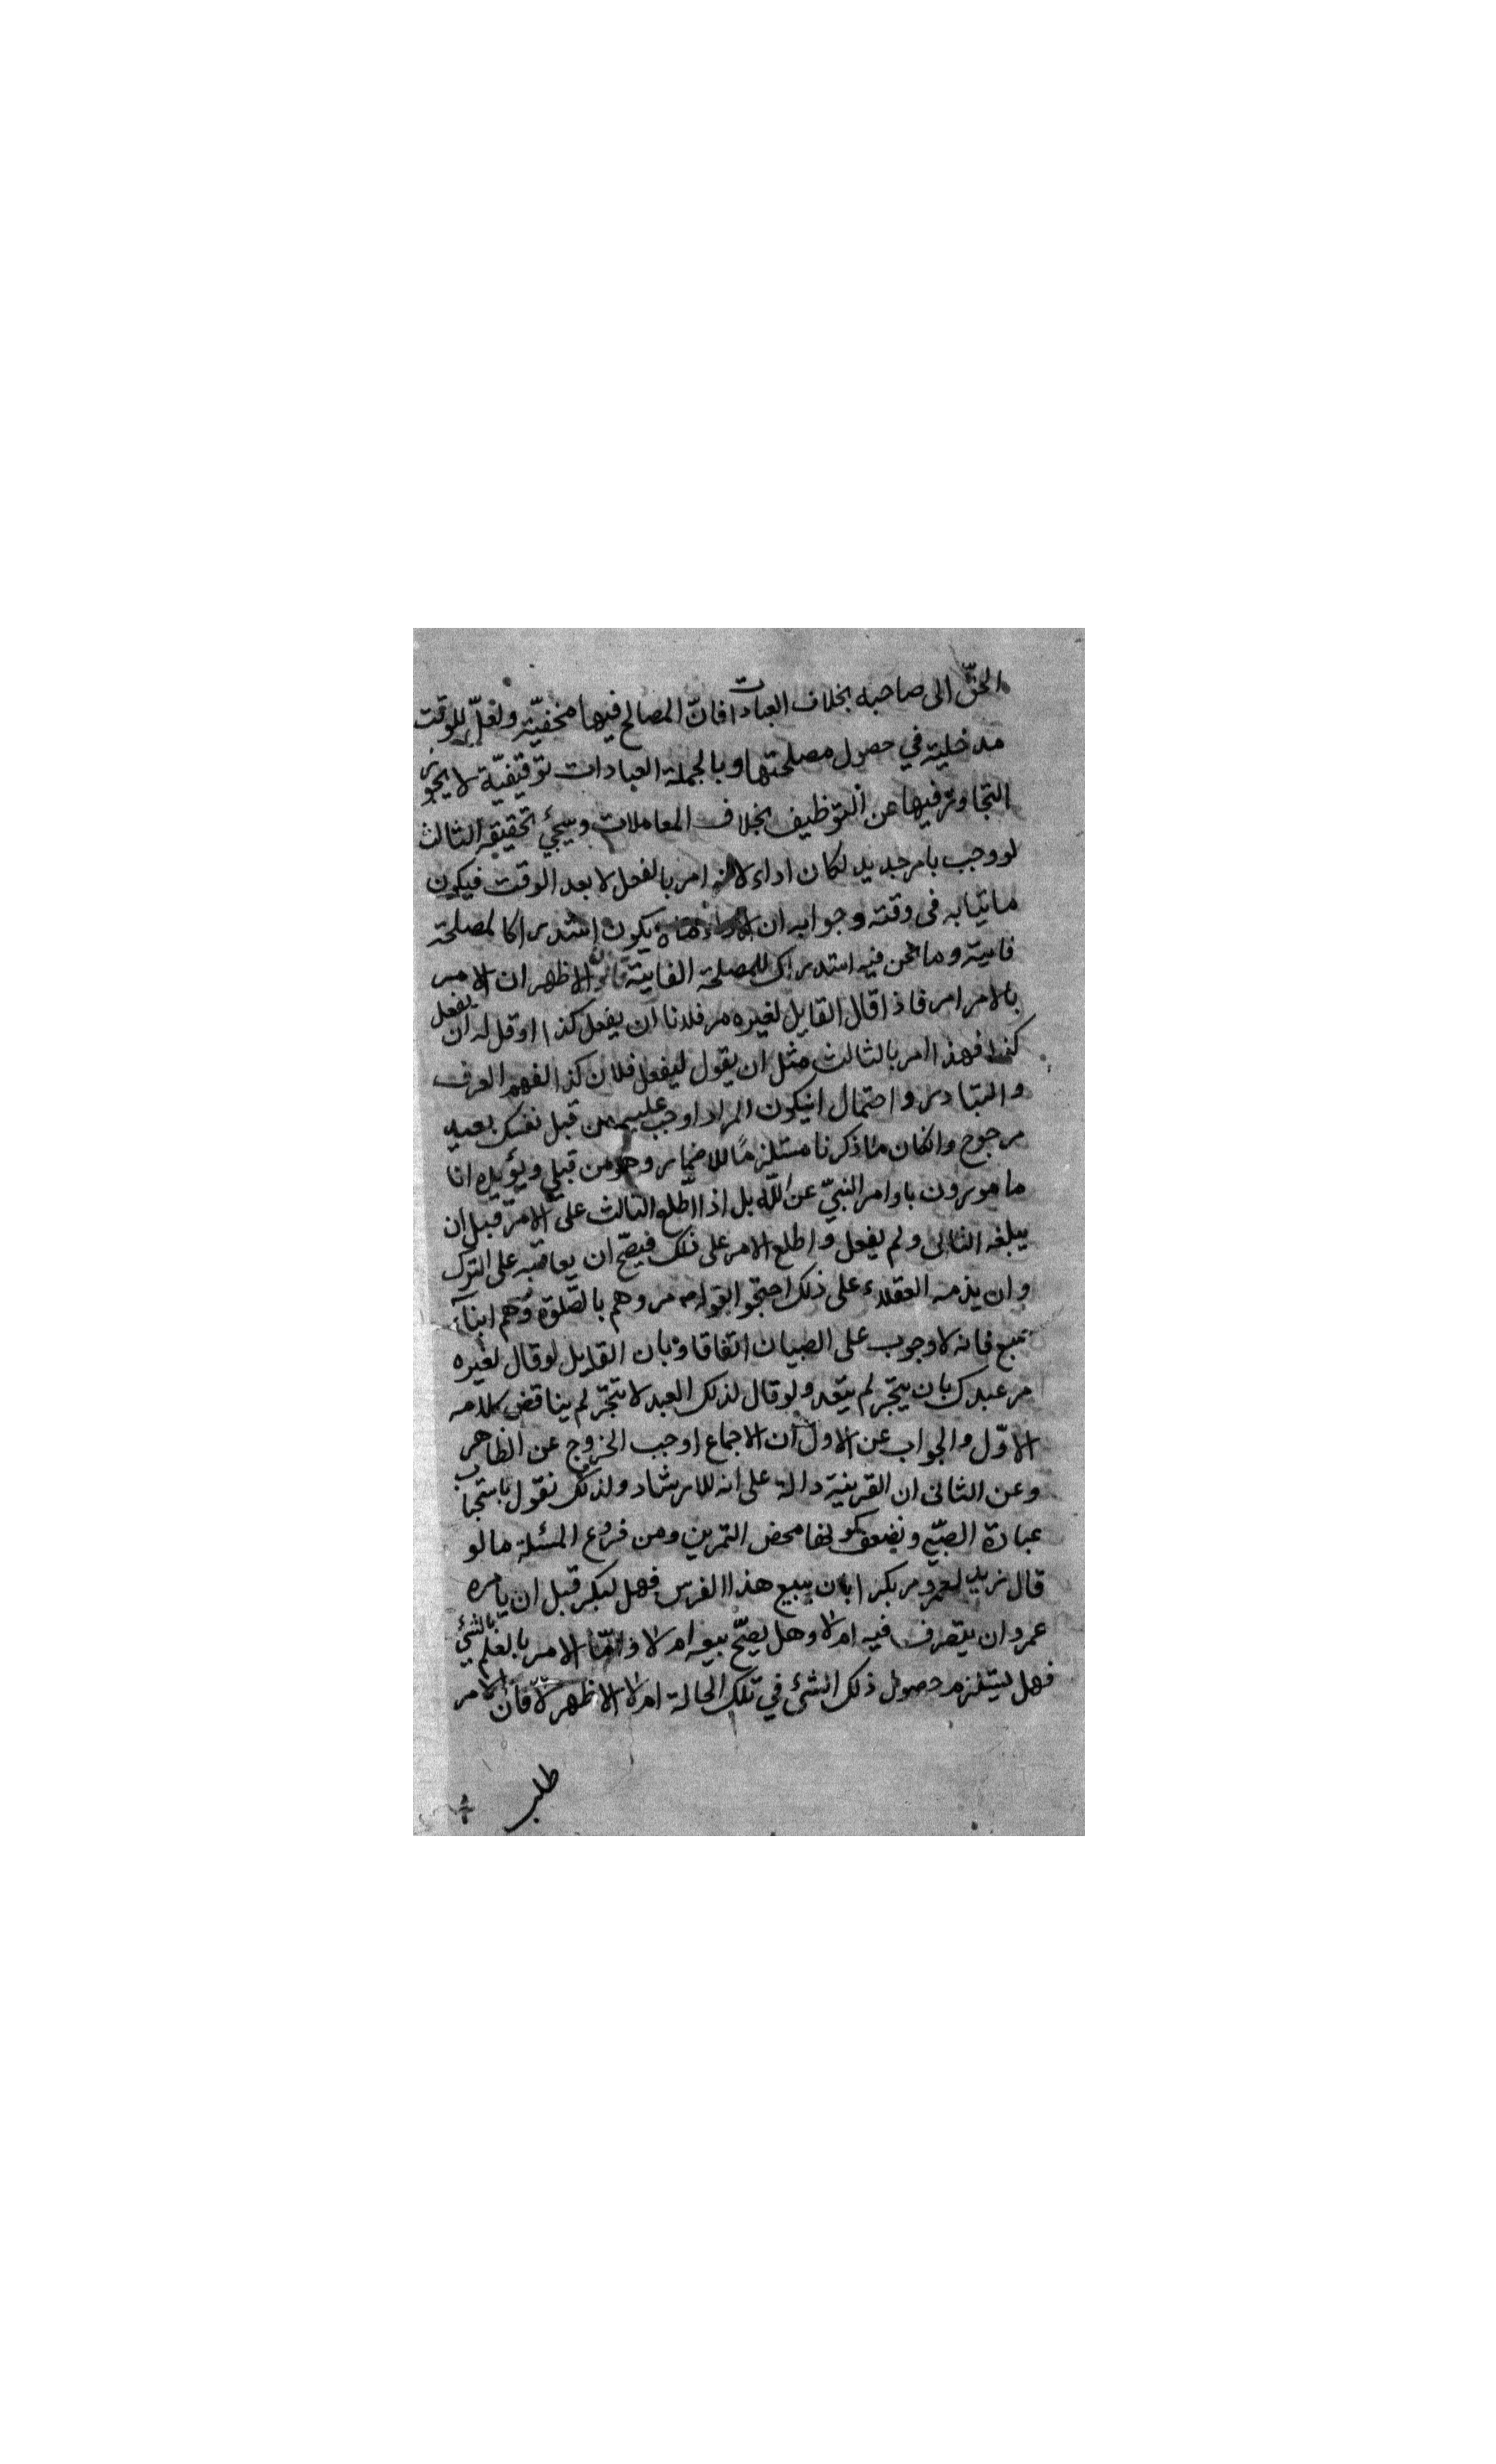 الحقّ الى صاحبه بخلاف العبادات فانّ المصالح فيها مخفيّة ولعلّ للوقت
مدخلية في حصول مصلحتها وبالجملة العبادات توقيفيّة لا يجوز
التجاوز فيها عن التوظيف بخلاف المعاملات وسيجيئ تحقيقه الثالث
لو وجب بامر جديد لكان اداء لانه امر بالفعل لا بعد الوقت فيكون
ماتيا به فى وقته وجوابه ان الاداء يكون استدراكا لمصلحة
فايتة وما نحن فيه استدراك للمصلحة الفايتة قانون الاظهر ان الامر
بالامر امر فاذا قال القايل لغيره مر فلانا ان يفعل كذا او قل له ان يفعل
كذا فهذا امر بالثالث مثل ان يقول ليفعل فلان كذا لفهم العرف
والتبادر واحتمال ان يكون المراد اوجب عليه من قبل نفسك بعيد
مرجوح وانكان ما ذكرنا مستلزمًا للاضمار وهو من قبلي ويؤيده انا
مامورون باوامر النبيّ عن اللّه بل اذا اطّلع الثالث على الامر قبل ان
يبلغه الثانى ولم يفعل واطلع الامر على ذلك فيصحّ ان يعاقبه على الترك
وان يذمه العقلاء على ذلك احتجّوا بقوله مروهم بالصّلوة وهم ابناء
سبع فانه لا وجوب على الصبيان اتفاقا وبان القايل لو قال لغيره
مر عبدك بان يتجر لم يتعد ولو قال لذلك العبد لا تتجر لم يناقض كلامه
الاوّل والجواب عن الاول ان الاجماع اوجب الخروج عن الظاهر
وعن الثانى ان القرينة دالة على انه للارشاد ولذلك نقول باستحباب
عبادة الصبّي ونضعف كونها محض التمرين ومن فروع المسئلة ما لو
قال زيد لعمرو مر بكرا بان يبيع هذا الفرس فهل لبكر قبل ان يامره
عمرو ان يتصرف فيه ام لا وهل يصحّ بيعه ام لا وامّا الامر بالعلم بالشئ
فهل يستلزم حصول ذلك الشئ في تلك الحالة ام لا الاظهر لا فان الامر
طلب